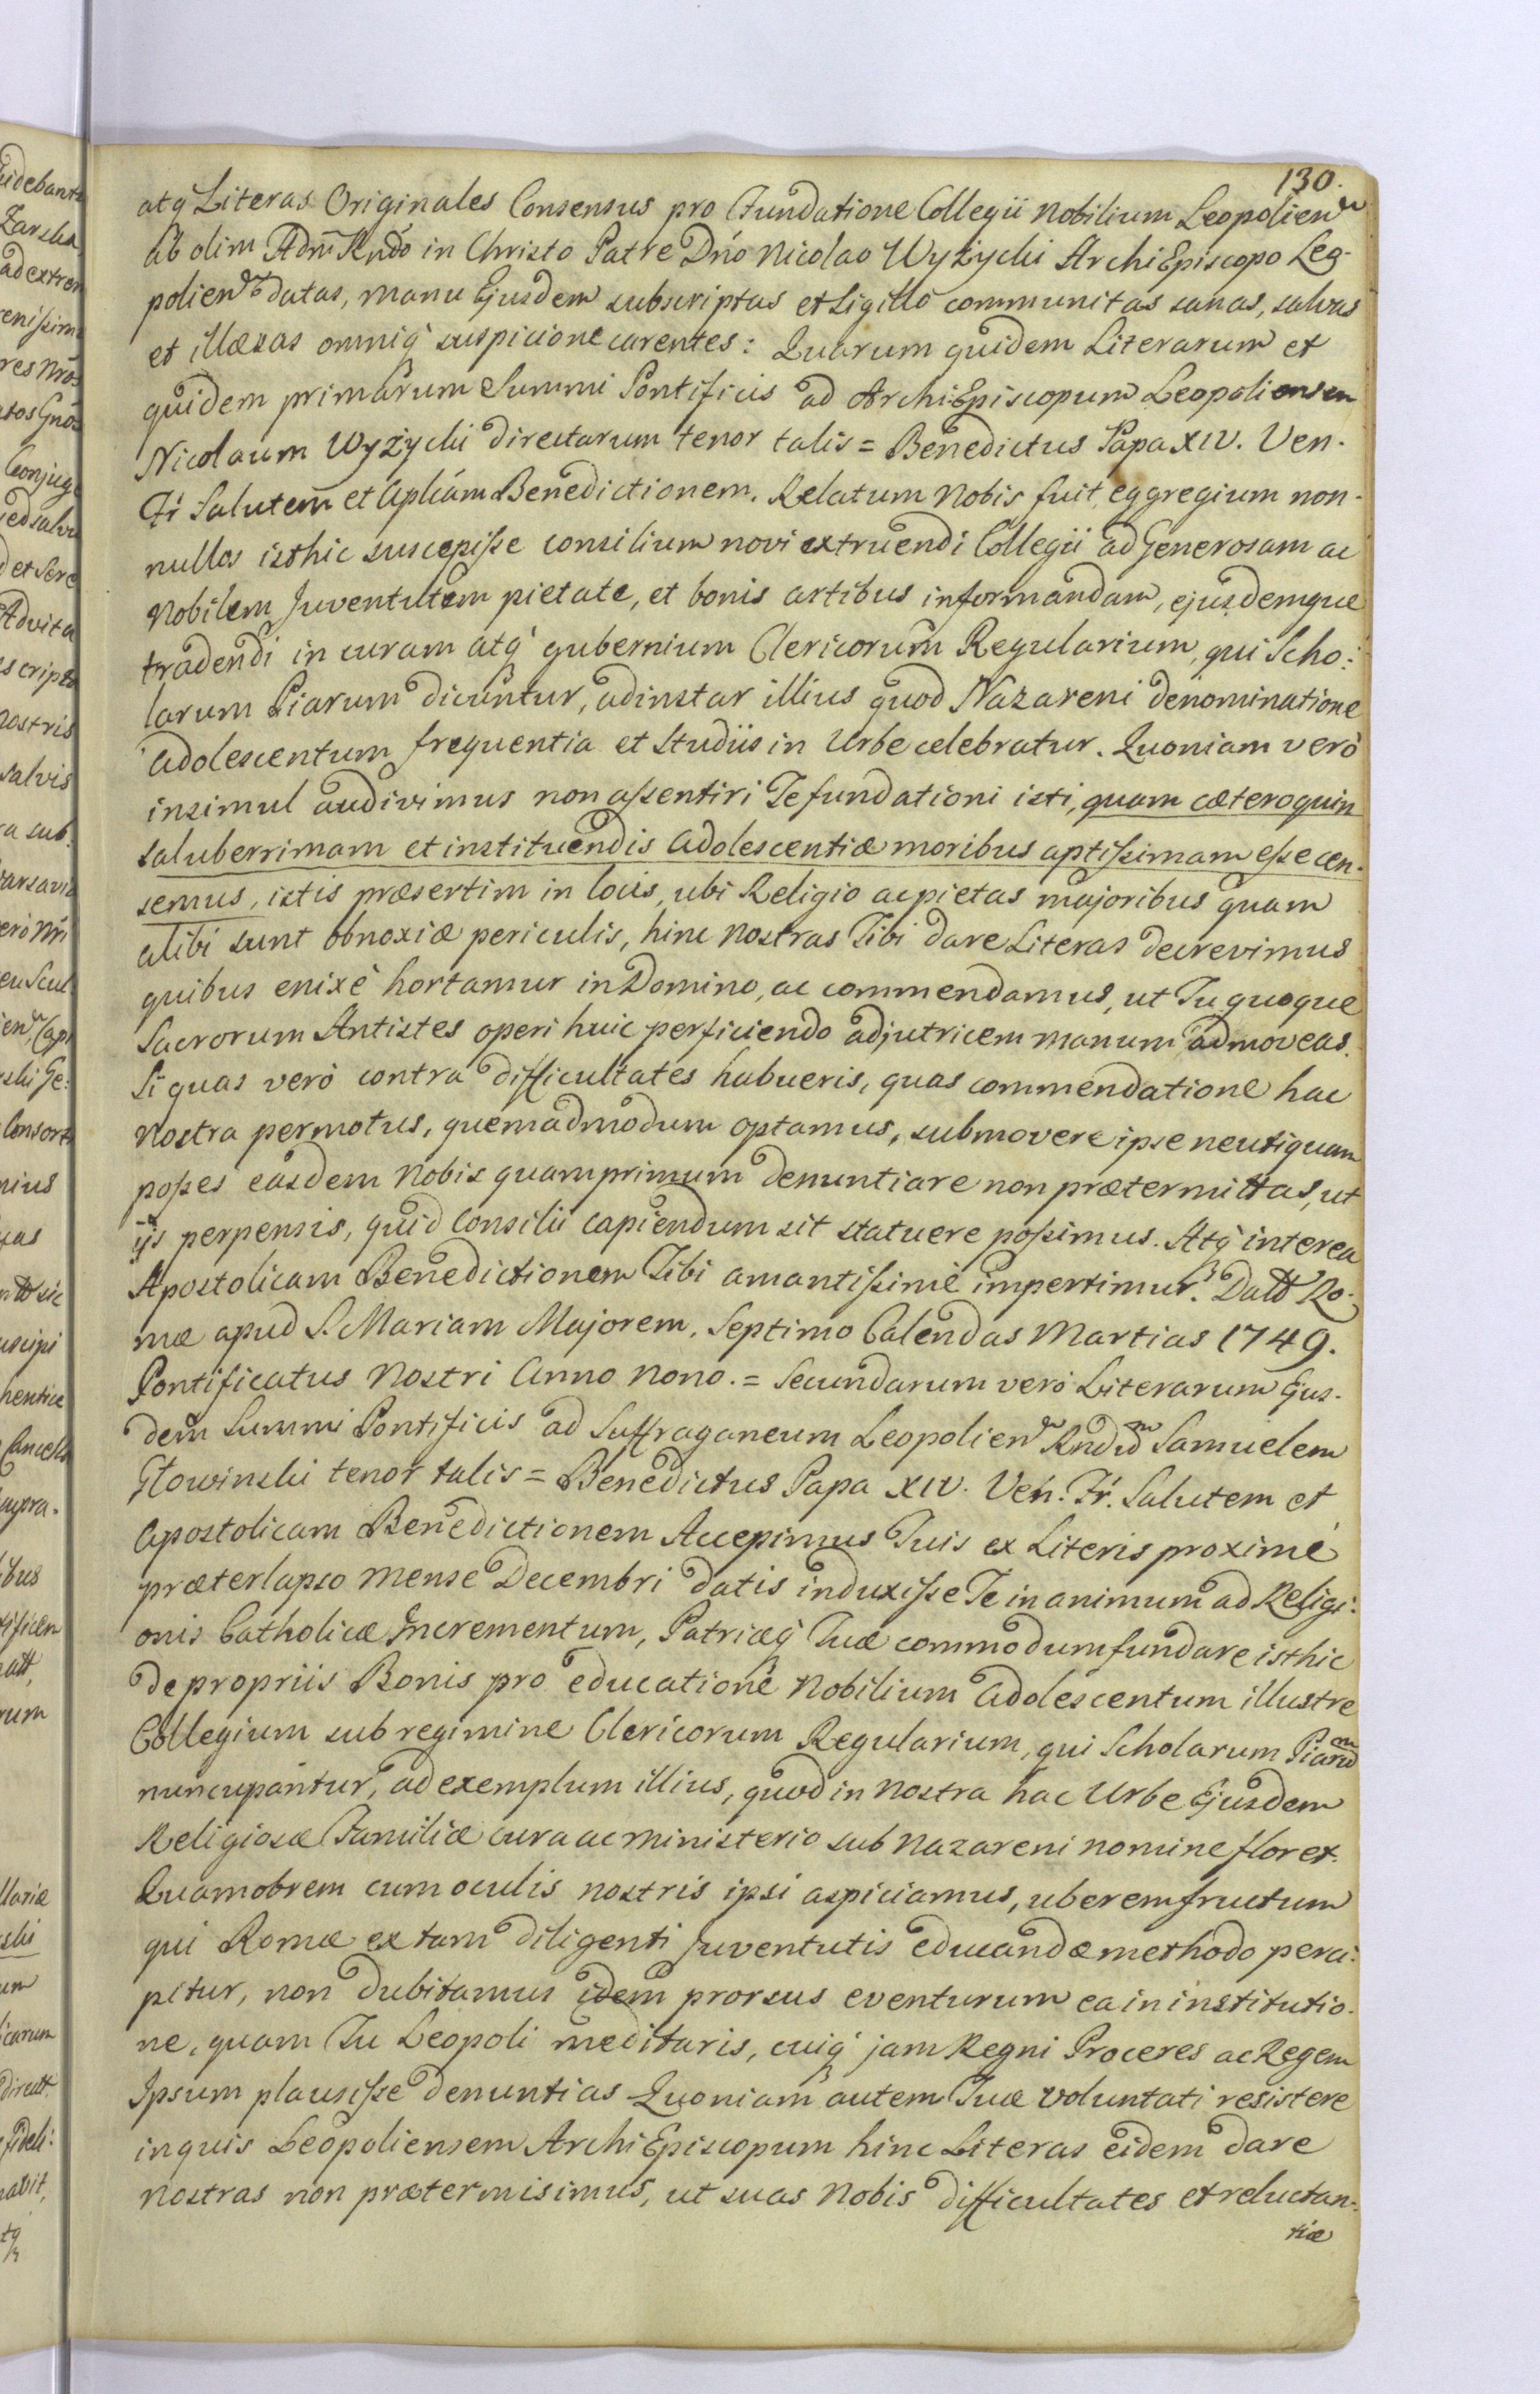 130.
atq́ Literas Originales Consensus pro Fundatione Collegii Nobilium Leopolien
ab olim Adm̃ Rndo in Christo Patre Dńo Nicolao Wyżycki ArchiEpiscopo Leo-
polien datas, manu Ejusdem subscriptas et Sigillo communitas sanas, salvas
et illæsas omniq́ suspicione carentes: Quarum quidem Literarum et
quidem primarum Summi Pontificis ad ArchiEpiscopum Leopoliensem
Nicolaum Wyżycki directarum tenor talis = Benedictus Papa XIV. Ven.
Fr̃ Salutem et Apliãm Benedictionem. Relatum Nobis fuit, eggregium non-
nullos isthic suscepiſse consilium novi extruendi Collegii ad Generosam ac
Nobilem Juventutem pietate, et bonis artibus informandam, ejusdemque
tradendi in curam atq́ gubernium Clericorum Regularium, qui Scho:
larum Piarum dicuntur, adinstar illius quod Nazareni denominatione
Adolescentum frequentia et Studiis in Urbe celebratur. Quoniam verò
insimul audivimus non aſsentiri Te fundationi isti, quam cæteroquin
saluberrimam et instituendis Adolescentiæ moribus aptiſsimam eſse cen-
semus, istis præsertim in locis, ubi Religio ac pietas majoribus quam
alibi sunt obnoxiæ periculis, hinc Nostras Tibi dare Literas decrevimus
quibus enixè hortamur in Domino, ac commendamus, ut Tu quoque
Sacrorum Antistes operi huic perficiendo adjutricem manum admoveas.
Si quas verò contra difficultates habueris, quas commendatione hac
Nostra permotus, quemadmodum optamus, submovere ipse neutiquam
poſses easdem Nobis quamprimum denuntiare non prætermittas, ut
ijs perpensis, quid Consilii capiendum sit statuere poſsimus. Atq́ interea
Apostolicam Benedictionem Tibi amantiſsimè impertimur. Datt Ro-
mæ apud S. Mariam Majorem, Septimo Calendas Martias 1749.
Pontificatus Nostri Anno Nono. = Secundarum verò Literarum Ejus-
dem Summi Pontificis ad Suffraganeum Leopolien Rndum Samuelem
Głowinski tenor talis = Benedictus Papa XIV. Veń. Fŕ. Salutem et
Apostolicam Benedictionem Accepimus Tuis ex Literis proximè
præterlapso Mense Decembri datis induxiſse Te in animum ad Religi:
onis Catholicæ Incrementum, Patriæq́ Tuæ commodum fundare isthic
de propriis Bonis pro educatione Nobilium Adolescentum illustre
Collegium sub regimine Clericorum Regularium, qui Scholarum Piarum
nuncupantur, ad exemplum illius, quod in Nostra hac Urbe Ejusdem
Religiosæ Familiæ cura ac Ministerio sub Nazareni nomine floret.
Quamobrem cum oculis nostris ipsi aspiciamus, uberem fructum
qui Romæ ex tam diligenti Juventutis educandæ methodo perci:
pitur, non dubitamus idem prorsus eventurum ea in institutio-
ne, quam Tu Leopoli meditaris, cuiq́ jam Regni Proceres ac Regem
Ipsum plausiſse denuntias Quoniam autem Tuæ voluntati resistere
inquis Leopoliensem ArchiEpiscopum hinc Literas eidem dare
Nostras non prætermisimus, ut suas Nobis difficultates et reluctan-
tiæ